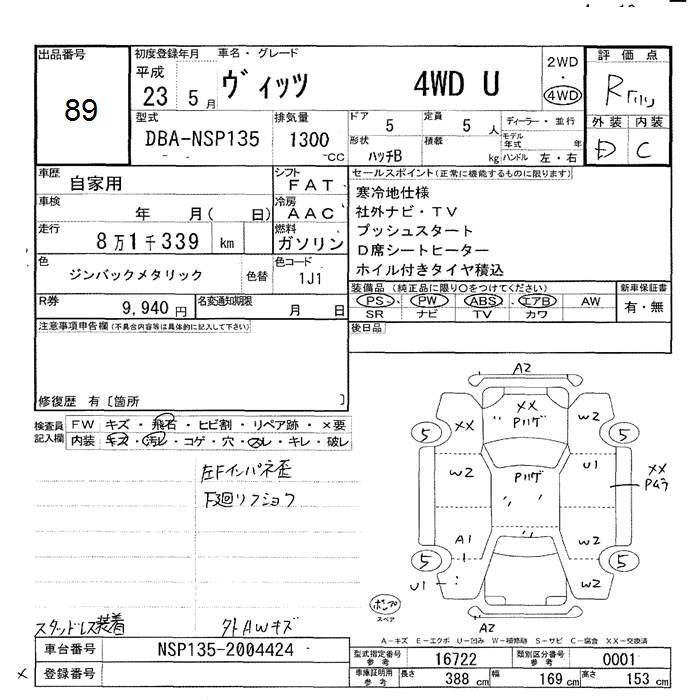 出品番号
89
初度登録年月
平成
23 5月
車名・グレード
ヴィッツ 4WD U
2WD
・
4WD
評価点
R
外装 内装
D C
型式
DBA-NSP135
排気量
1300
cc
ドア
5
定員
5人
ディーラー・並行
形状
ハッチB
積載
kg
モデル年式 年
ハンドル 左・右
車歴
自家用
シフト
FAT
車検
年 月( 日)
冷房
AAC
走行
8万1千339 km
燃料
ガソリン
色
ジンバックメタリック
色替
色コード
1J1
R券
9,940円
名変通知期限
月 日
セールスポイント(正常に機能するものに限ります)
寒冷地仕様
社外ナビ・TV
プッシュスタート
D席シートヒーター
ホイル付きタイヤ積込
装備品(純正品に限り○をつけてください)
PS PW ABS エアB AW
SR ナビ TV カワ
新車保証書
有・無
後日品
注意事項申告欄(不具合内容等は具体的に記入して下さい)
修復歴 有〔箇所 〕
検査員
記入欄
FW キズ・飛石・ヒビ割・リペア跡・×要
内装 キズ・汚レ・コゲ・穴・コレ・キレ・破レ
左Fインパネ歪
下廻リフショク
スタッドレス装着
タトAWキズ
A2
XX
Pハゲ
XX
W2
5
5
W2
Pハゲ
U1
XX
Pムラ
A1
W2
5
5
U1
W2
ポンプ
スペア
A2
A-キズ E-エクボ U-凹み W-補修跡 S-サビ C-腐食 XX-交換済
車台番号
NSP135-2004424
登録番号
型式指定番号
参考
16722
類別区分番号
参考
0001
車庫証明用
参考
長さ
388 cm
幅
169 cm
高さ
153 cm